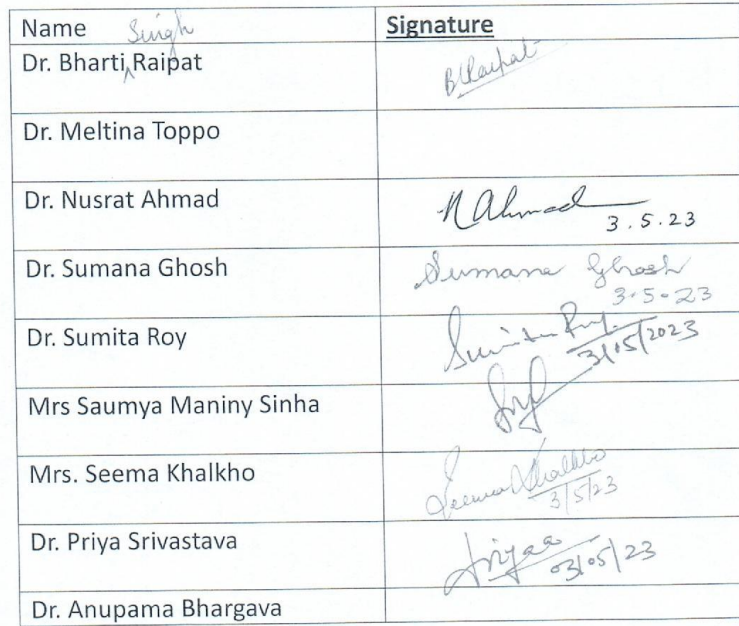 Name Signature
Singh
Dr. Bharti ^ Raipat BURaipat
Dr. Meltina Toppo
Dr. Nusrat Ahmad N Ahmad
3.5.23
Dr. Sumana Ghosh Sumana Ghosh
3.5.23
Dr. Sumita Roy Sumita Roy
3/05/2023
Mrs Saumya Maniny Sinha
Mrs. Seema Khalkho Seema Khalkho
3/5/23
Dr. Priya Srivastava Priyaa
03/05/23
Dr. Anupama Bhargava